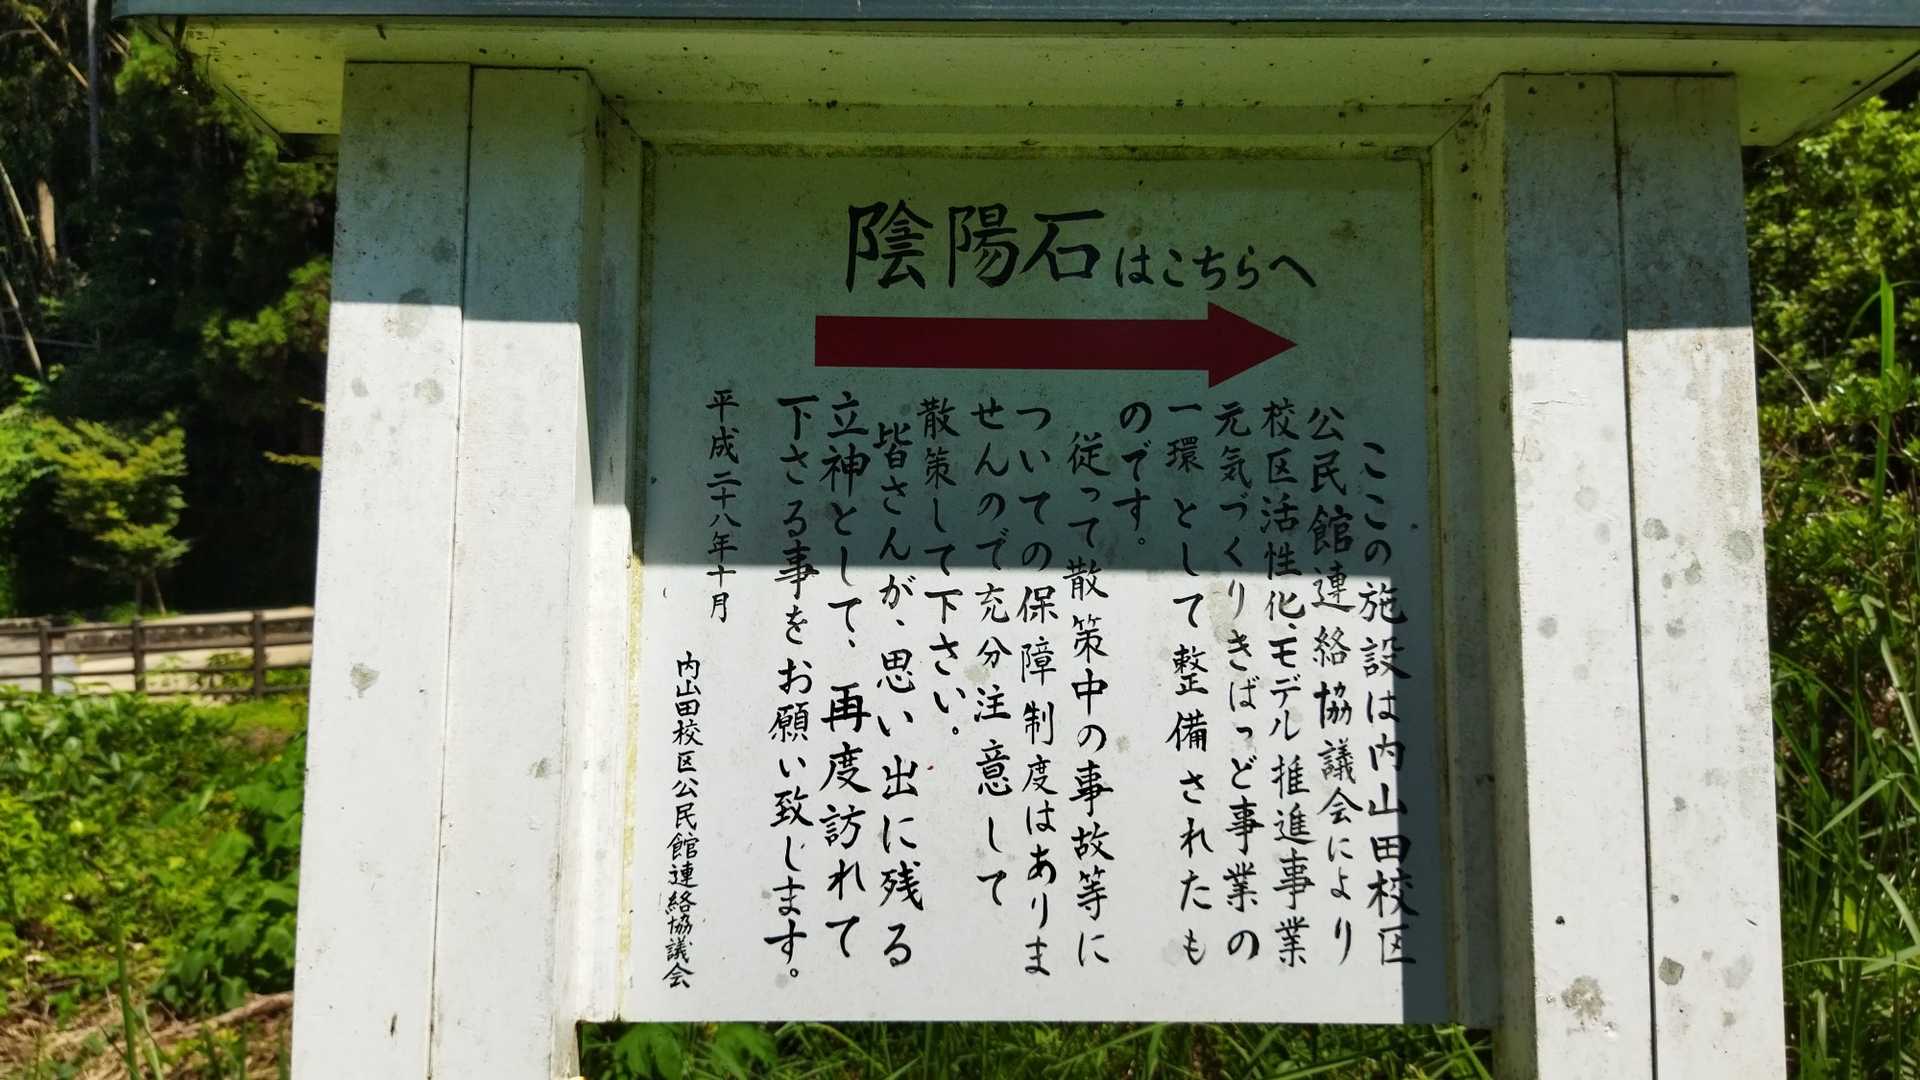 陰陽石はこちらへ
ここの施設は内山田校区
公民館連絡協議会により
校区活性化、モデル推進事業
元気づくりきばっど事業の
一環として整備されたも
のです。
従って散策中の事故等に
ついての保障制度はありま
せんので充分注意して
散策して下さい。
皆さんが、思い出に残る
立神として、再度訪れて
下さる事をお願い致します。
平成二十八年十月
内山田校区公民館連絡協議会